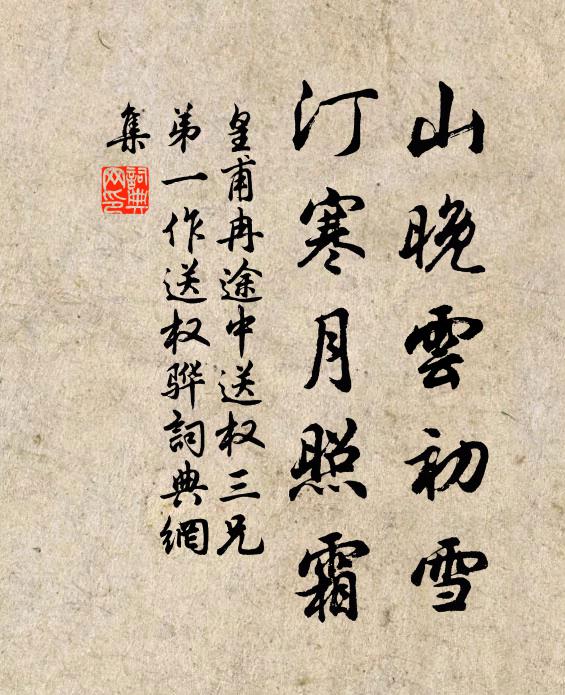 山晚雲初雪
汀寒月照霜
皇甫冉途中送权三兄
弟一作送权骅詞典網
集
詞典
网印